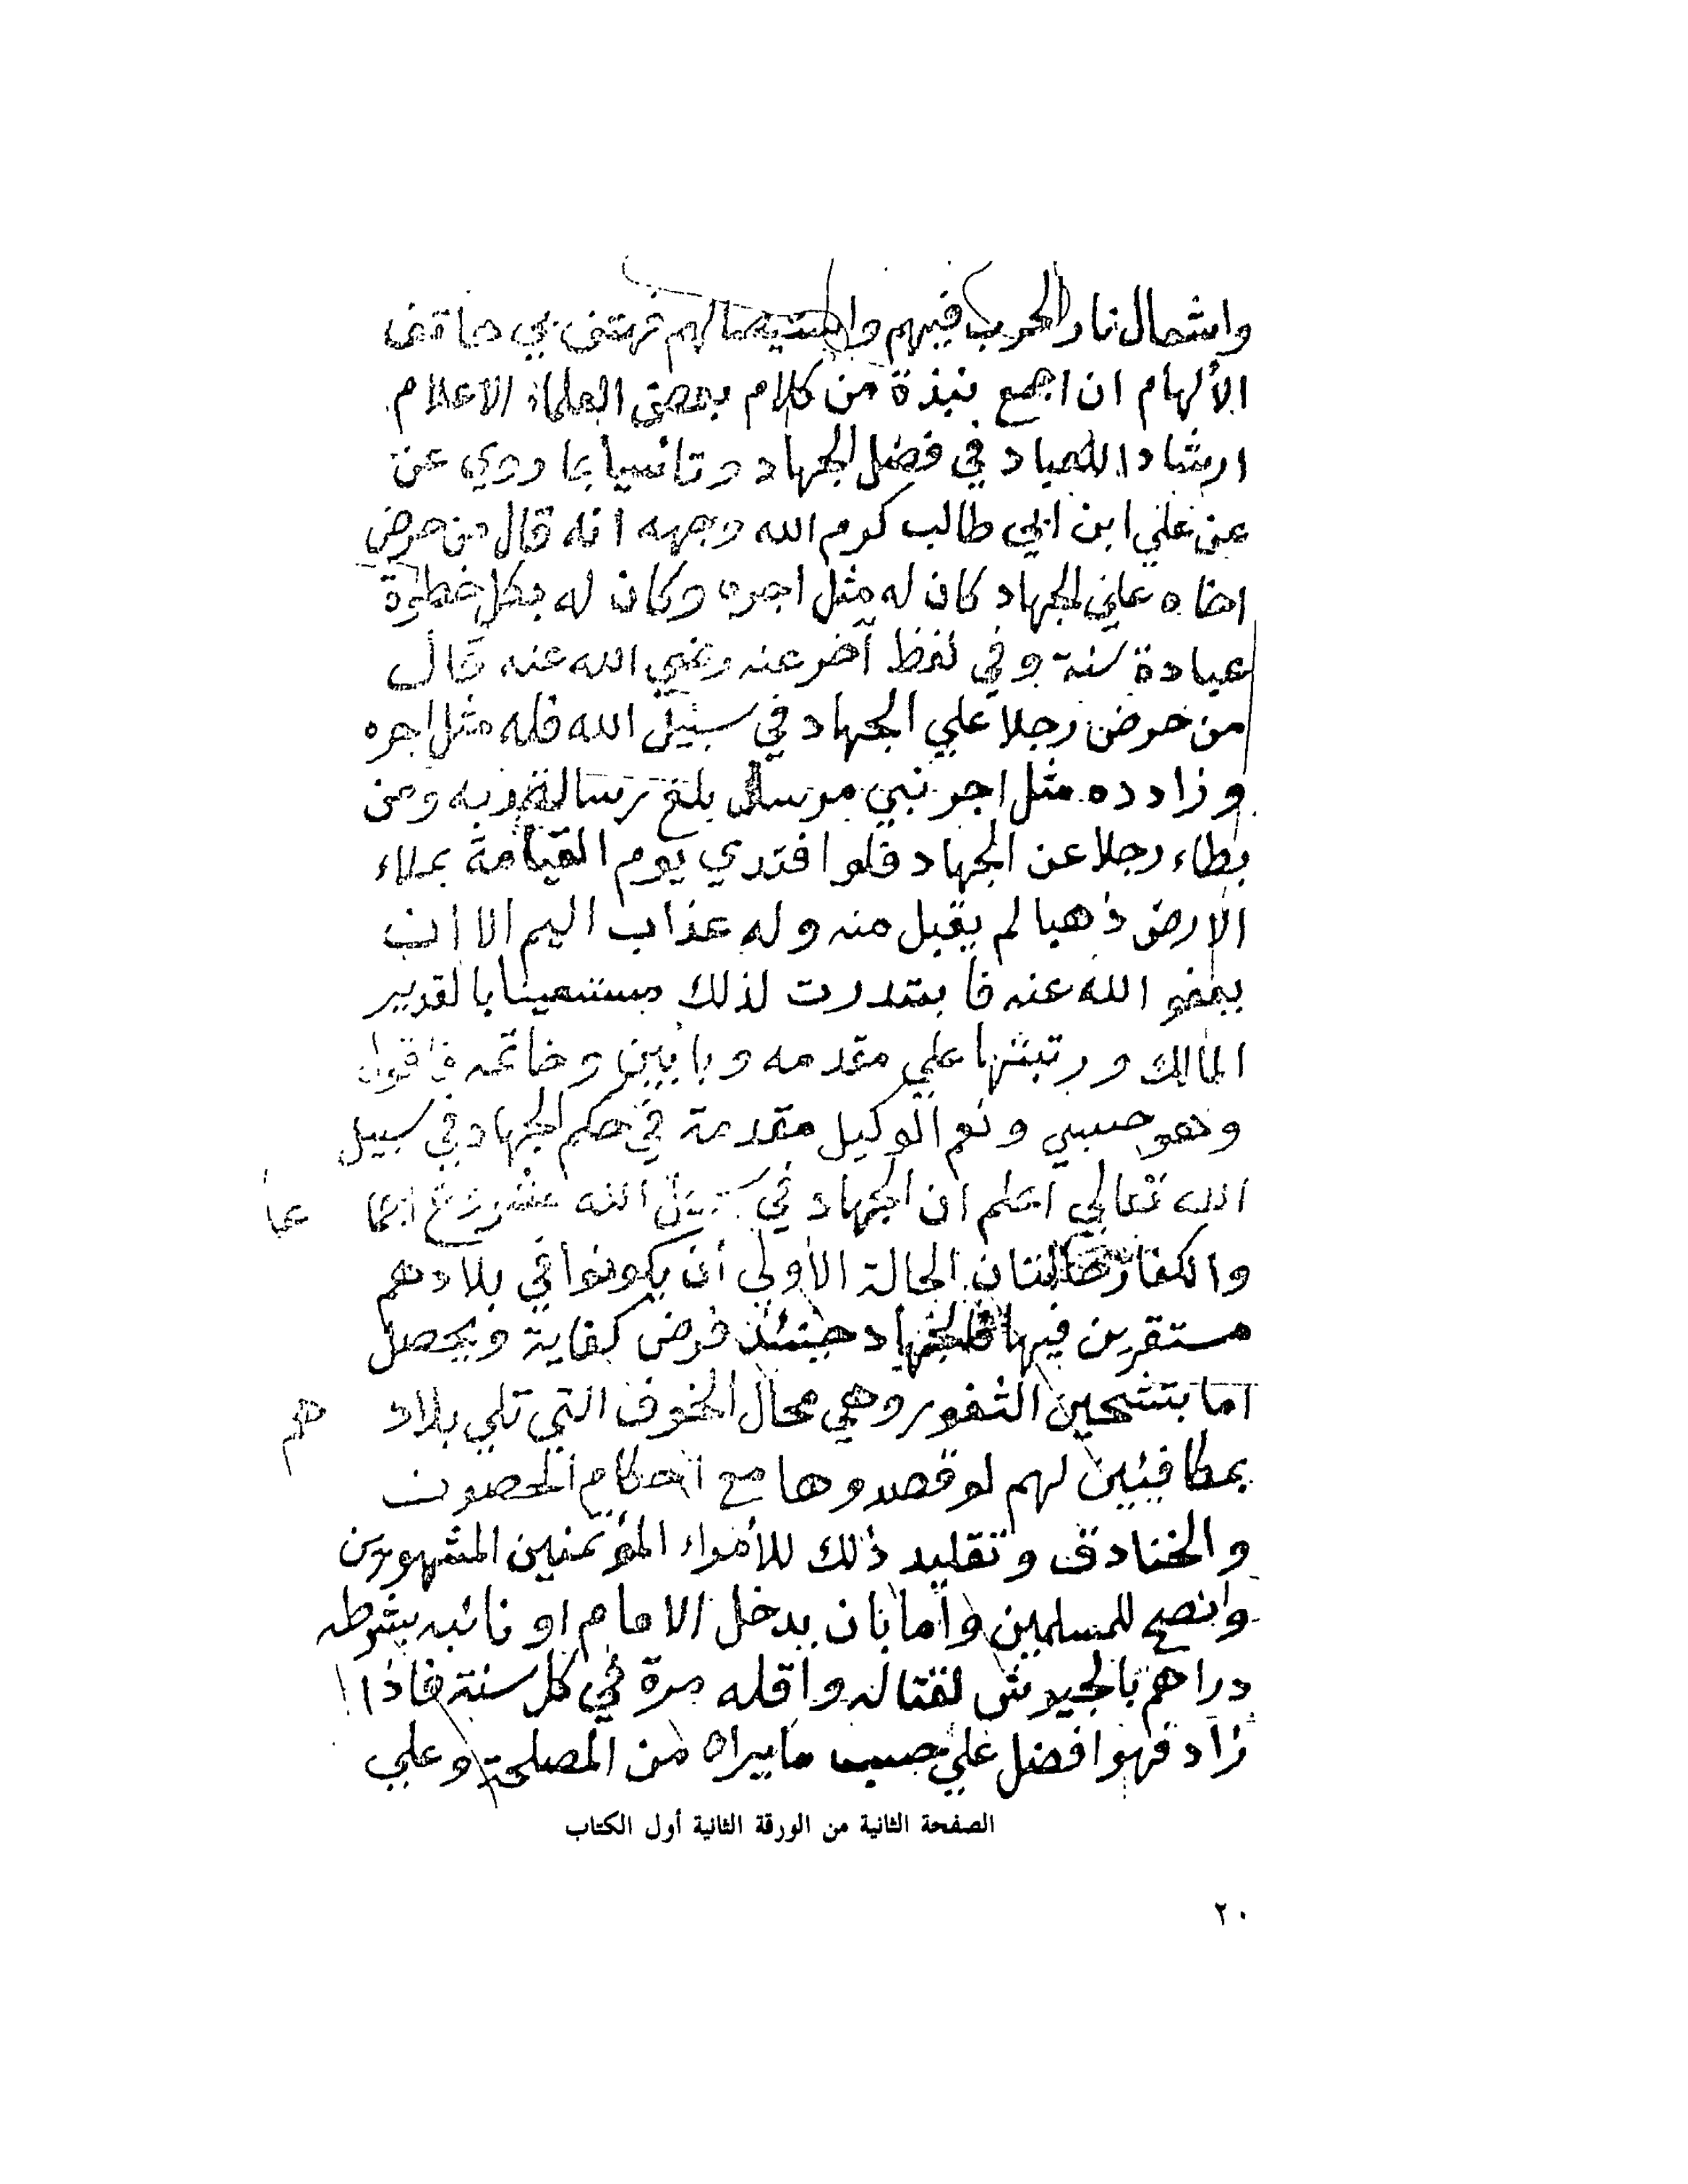 واشعال نار الحرب فيهم واستيصالهم فهتف بي هاتف
الألهام ان اجمع نبذة من كلام بعض العلماء الاعلام
ارشادا للعباد في فضل الجهاد وتأنسيا بما روي عن
عن علي ابن ابي طالب كرم الله وجهه انه قال من حرض
اخاه علي الجهاد كان له مثل اجره وكان له بكل خطوة
عبادة سنة وفي لفظ آخر عنه رضي الله عنه قال
من حرض رجلا علي الجهاد في سبيل الله فله مثل اجره
وزاد ده مثل اجر نبي مرسل بلغ رسالة ربه ومن
بطاء رجلا عن الجهاد فلو افتدي يوم القيامة بملاء
الارض ذهبا لم يقبل منه وله عذاب اليم الا ان
يعفو الله عنه فابتدرت لذلك مستعينا بالقدير
المالك ورتبتها علي مقدمه وبابين وخاتمه فاقول
وهو حسبي ونعم الوكيل مقدمة في حكم الجهاد في سبيل
الله تعالي اعلم ان الجهاد في سبيل الله مشروع
والكفار حالتان الحالة الأولي أن يكونوا في بلادهم
مستقرين فيها فالجهاد حينئذ فرض كفاية ويحصل
اما بتشحين الثغور وهي محال الخوف التي تلي بلاد هم
بمكافئين لهم لو قصدوها مع احكام الحصون
والخنادق وتقليد ذلك للأمراء المؤتمنين المشهورين
وانصح للمسلمين وأما بان يدخل الامام او نائبه بشرطه
دراهم بالجيوش لقتاله وأقله مرة في كل سنة فاذا
زاد فهو افضل علي حسب ما يراه من المصلحة وعلي
الصفحة الثانية من الورقة الثانية أول الكتاب
٢٠